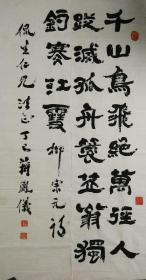 千山鳥飛絕萬徑人
蹤滅孤舟蓑笠翁獨
釣寒江雪 柳宗元詩
侃生仁兄 正 丁巳 鳳儀